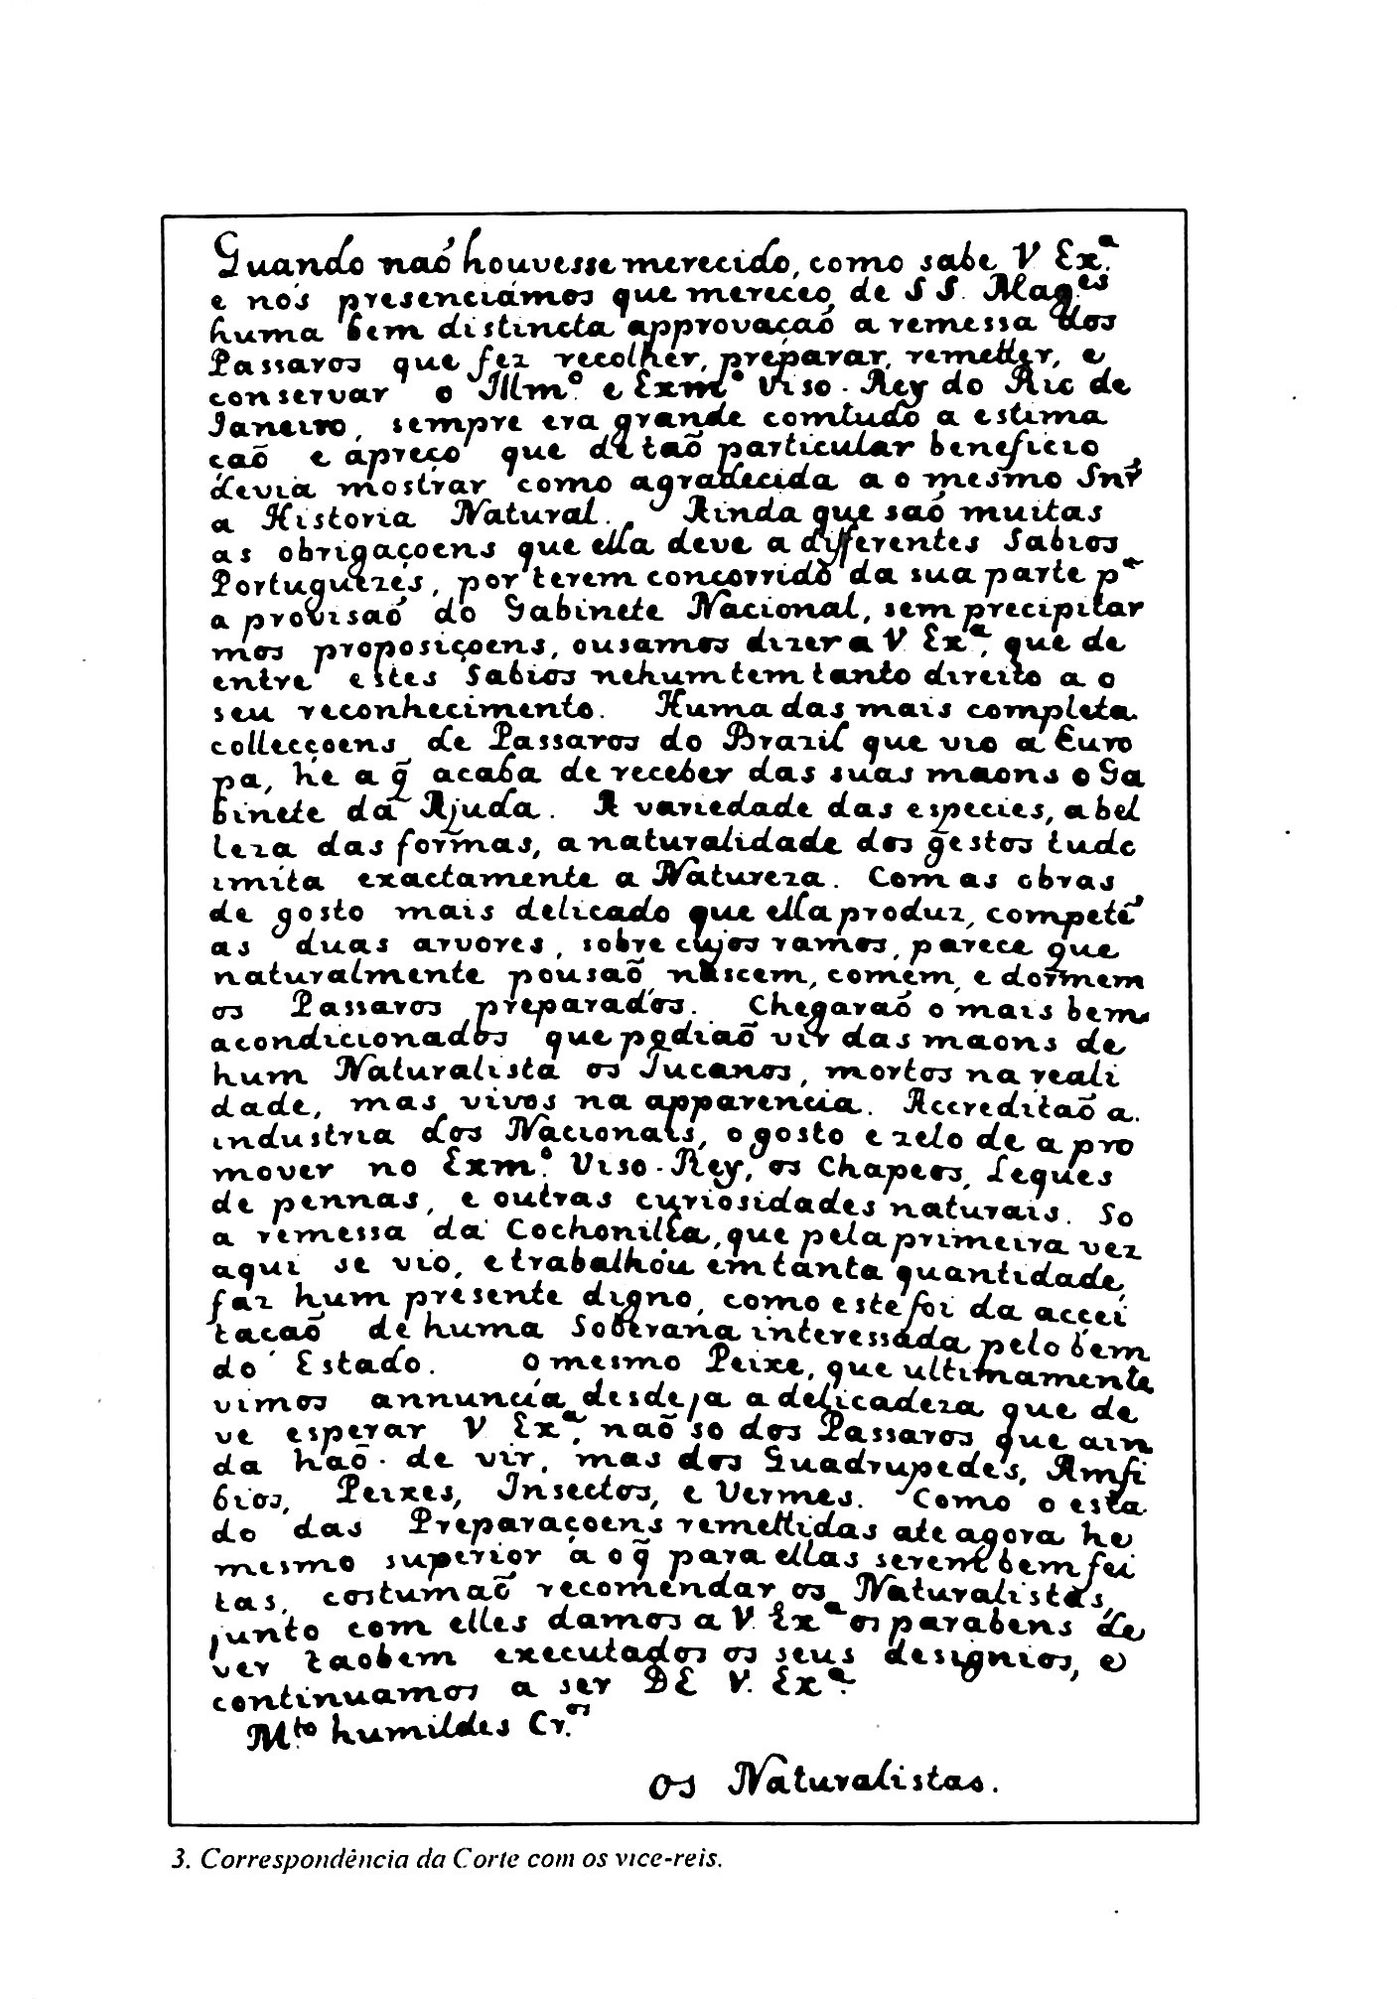 Quando naõ houvesse merecido, como sabe V Ex.ª
e nós presenciámos que mereceo, de SS. Mag.es
huma bem distincta approvaçaõ a remessa dos
Passaros que fez recolher, preparar, remetter, e
conservar o Illm.º e Exm.º Viso-Rey do Rio de
Janeiro, sempre era grande comtudo a estima
çaõ e apreço que de taõ particular beneficio,
devia mostrar como agradecida a o mesmo Snr̃
a Historia Natural. Ainda que saõ muitas
as obrigaçoens que ella deve a differentes Sabios
Portuguezes, por terem concorrido da sua parte pª
a provisaõ do Gabinete Nacional, sem precipitar
mos proposiçoens, ousamos dizer a V. Ex.ª, que de
entre estes Sabios nehum tem tanto direito a o
seu reconhecimento. Huma das mais completa
collecçoens de Passaros do Brazil que vio a Euro
pa, he a q̃ acaba de receber das suas maons o Ga
binete da Ajuda. A variedade das especies, a bel
leza das formas, a naturalidade dos gestos tudo
imita exactamente a Natureza. Com as obras
de gosto mais delicado que ella produz, competẽ
as duas arvores, sobre cujos ramos, parece que
naturalmente pousaõ, nascem, comem, e dormem
os Passaros preparados. Chegaraõ o mais bem
acondicionados que podiaõ vir das maons de
hum Naturalista os Tucanos, mortos na reali
dade, mas vivos na apparencia. Accreditaõ a
industria dos Nacionais, o gosto e zelo de a pro
mover no Exm.º Viso-Rey, os Chapeos, Leques
de pennas, e outras curiosidades naturais. So
a remessa da Cochonilla, que pela primeira vez
aqui se vio, e trabalhou em tanta quantidade,
faz hum presente digno, como este foi da accei
taçaõ de huma Soberana interessada pelo bem
do Estado. O mesmo Peixe, que ultimamente
vimos annuncia desde ja a delicadeza que de
ve esperar V Ex.ª, naõ so dos Passaros que ain
da haõ de vir, mas dos Quadrupedes, Amfi
bios, Peixes, Insectos, e Vermes. Como o esta
do das Preparaçoens remettidas ate agora he
mesmo superior á o q̃ para ellas serem bem fei
tas, costumaõ recomendar os Naturalistas,
junto com elles damos a V. Ex.ª os parabens de
ver taobem executados os seus designios, e
continuamos a ser DE V. Ex.ª
M.to humildes Cr.os
Os Naturalistas.
3. Correspondência da Corte com os vice-reis.